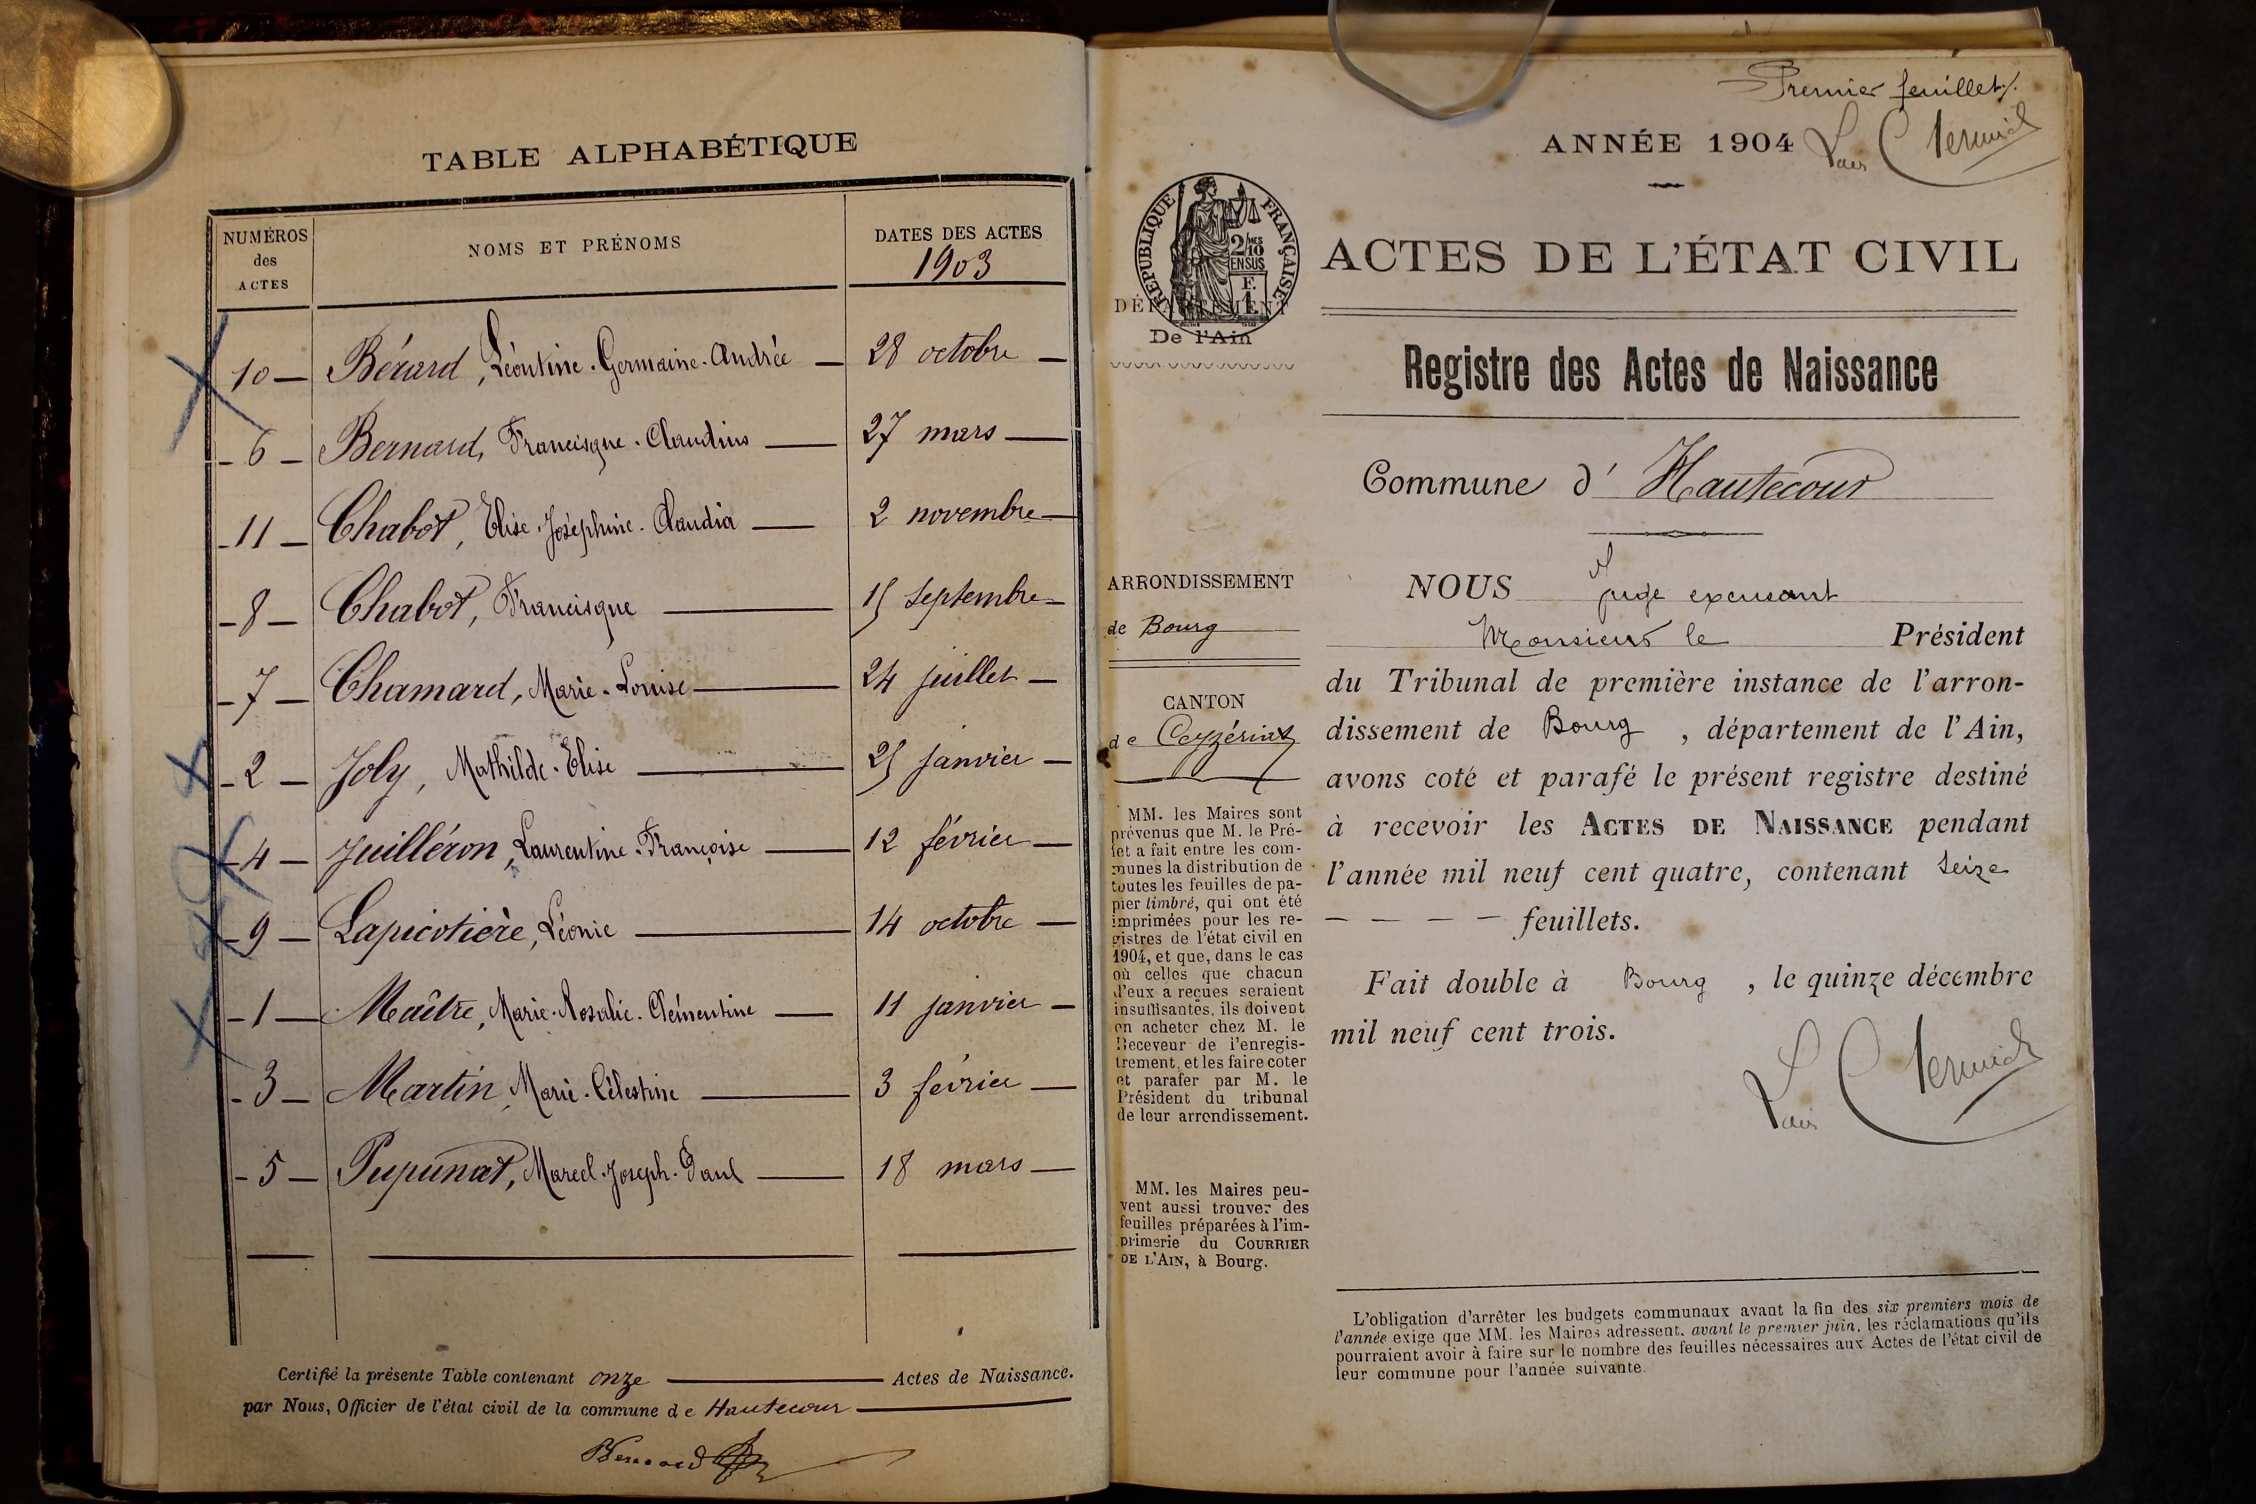 TABLE ALPHABÉTIQUE
NUMÉROS
des
ACTES
NOMS ET PRÉNOMS
DATES DES ACTES
1903
10 — Bérard, Léontine-Germaine-Andrée — 28 octobre —
- 6 - Bernard, Francisque-Claudius — 27 mars —
- 11 - Chabot, Elise-Joséphine-Claudia — 2 novembre —
- 8 - Chabot, Francisque — 15 septembre -
- 7 - Chamard, Marie-Louise — 24 juillet -
- 2 - Joly, Mathilde-Elise — 25 janvier -
- 4 - Juilléron, Laurentine-Françoise — 12 février -
- 9 - Lapicotière, Léonie — 14 octobre —
- 1 - Maître, Marie-Rosalie-Clémentine — 11 janvier -
- 3 - Martin, Marie-Célestine — 3 février —
- 5 - Pupunat, Marcel-Joseph-Paul — 18 mars —
Certifié la présente Table contenant onze — Actes de Naissance.
par Nous, Officier de l'état civil de la commune de Hautecour —
Bernard
Premier feuillet /.
ANNÉE 1904
RÉPUBLIQUE FRANÇAISE
2/10 EN SUS
F. 1
DÉPARTEMENT
De l'Ain
ACTES DE L'ÉTAT CIVIL
Registre des Actes de Naissance
Commune d' Hautecour
ARRONDISSEMENT
de Bourg
CANTON
de Ceyzériat
MM. les Maires sont
prévenus que M. le Pré-
fet a fait entre les com-
munes la distribution de
toutes les feuilles de pa-
pier timbré, qui ont été
imprimées pour les re-
gistres de l'état civil en
1904, et que, dans le cas
où celles que chacun
d'eux a reçues seraient
insuffisantes, ils doivent
en acheter chez M. le
Receveur de l'enregis-
trement, et les faire coter
et parafer par M. le
Président du tribunal
de leur arrondissement.
MM. les Maires peu-
vent aussi trouver des
feuilles préparées à l'im-
primerie du COURRIER
DE L'AIN, à Bourg.
NOUS Juge excusant
Monsieur le Président
du Tribunal de première instance de l'arron-
dissement de Bourg , département de l'Ain,
avons coté et parafé le présent registre destiné
à recevoir les ACTES DE NAISSANCE pendant
l'année mil neuf cent quatre, contenant seize
— — — — feuillets.
Fait double à Bourg , le quinze décembre
mil neuf cent trois.
L'obligation d'arrêter les budgets communaux avant la fin des six premiers mois de
l'année exige que MM. les Maires adressent, avant le premier juin, les réclamations qu'ils
pourraient avoir à faire sur le nombre des feuilles nécessaires aux Actes de l'état civil de
leur commune pour l'année suivante.